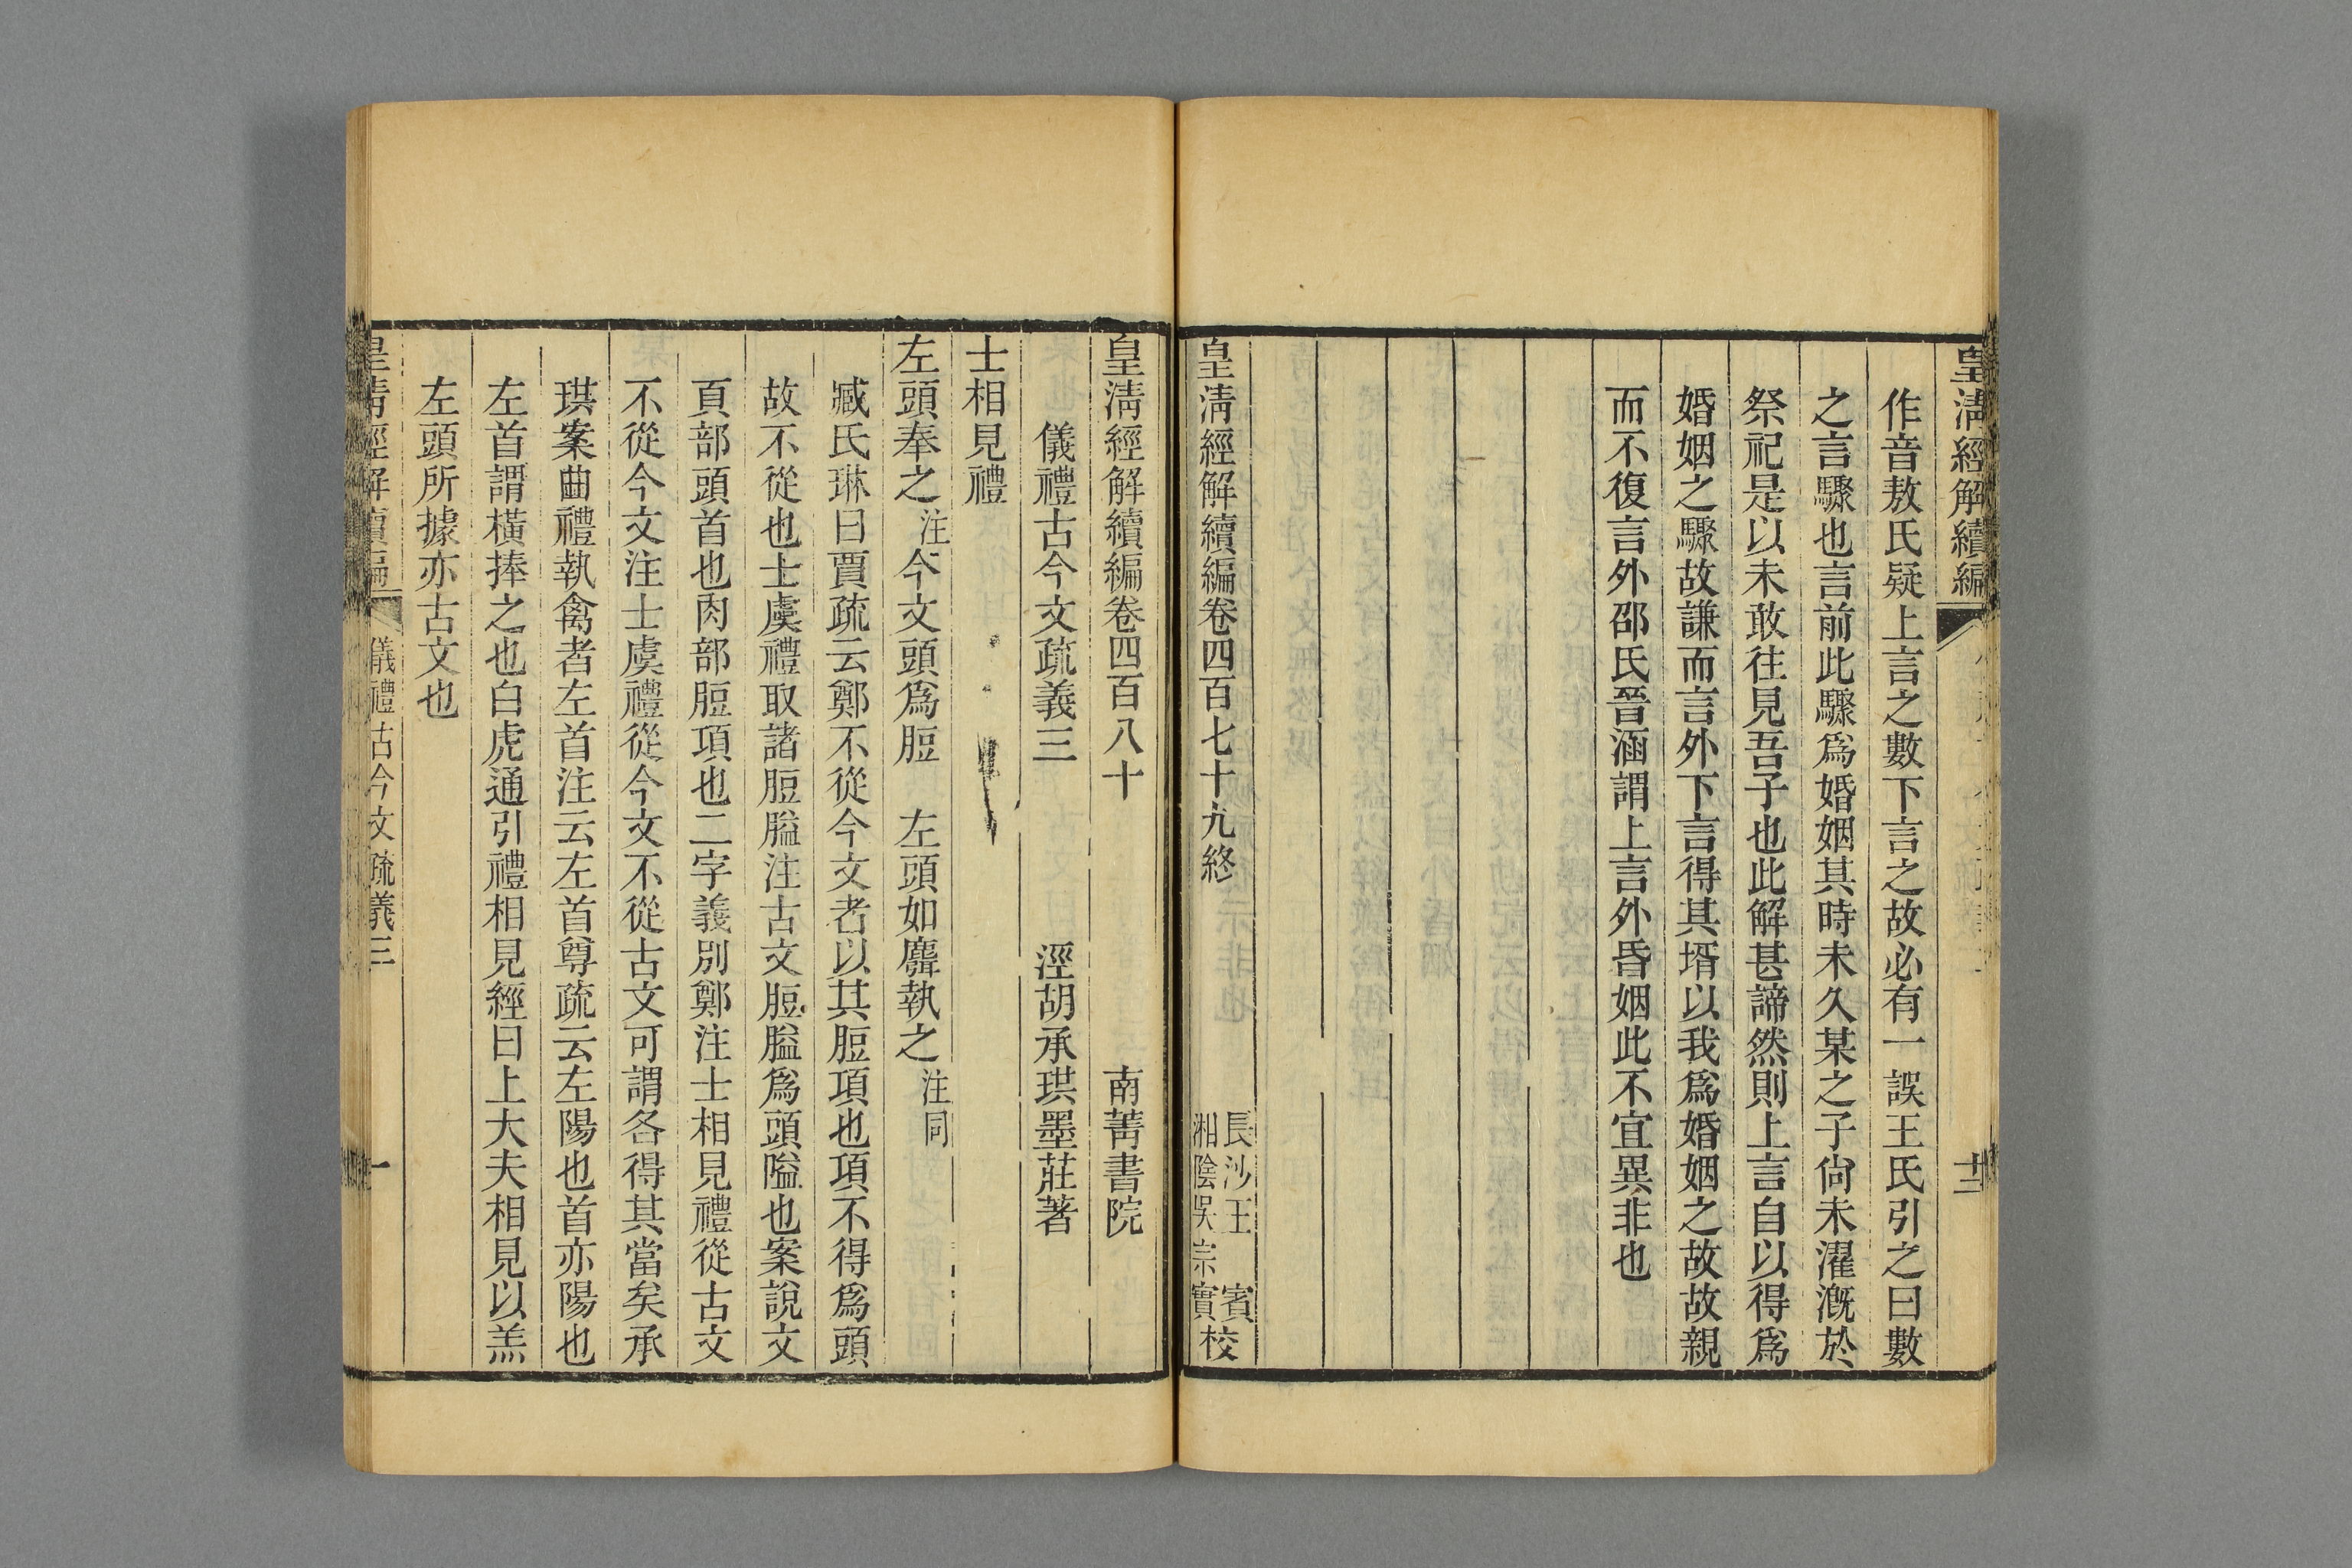 皇淸經解續編
十三
作音敖氏疑上言之數下言之故必有一誤王氏引之曰數
之言驟也言前此驟爲婚姻其時未久某之子尙未濯漑於
祭祀是以未敢往見吾子也此解甚諦然則上言自以得爲
婚姻之驟故謙而言外下言得其壻以我爲婚姻之故故親
而不復言外邵氏晉涵謂上言外昏姻此不宜異非也
皇淸經解續編卷四百七十九終
長沙王賓
湘陰吳宗實校
皇淸經解續編卷四百八十 南菁書院
儀禮古今文疏義三 涇胡承珙墨莊著
士相見禮
左頭奉之注今文頭爲脰 左頭如麛執之注同
臧氏琳曰賈疏云鄭不從今文者以其脰項也項不得爲頭
故不從也士虞禮取諸脰膉注古文脰膉爲頭嗌也案說文
頁部頭首也肉部脰項也二字義別鄭注士相見禮從古文
不從今文注士虞禮從今文不從古文可謂各得其當矣承
珙案曲禮執禽者左首注云左首尊疏云左陽也首亦陽也
左首謂橫捧之也白虎通引禮相見經曰上大夫相見以羔
左頭所據亦古文也
皇淸經解續編
儀禮古今文疏義三
一